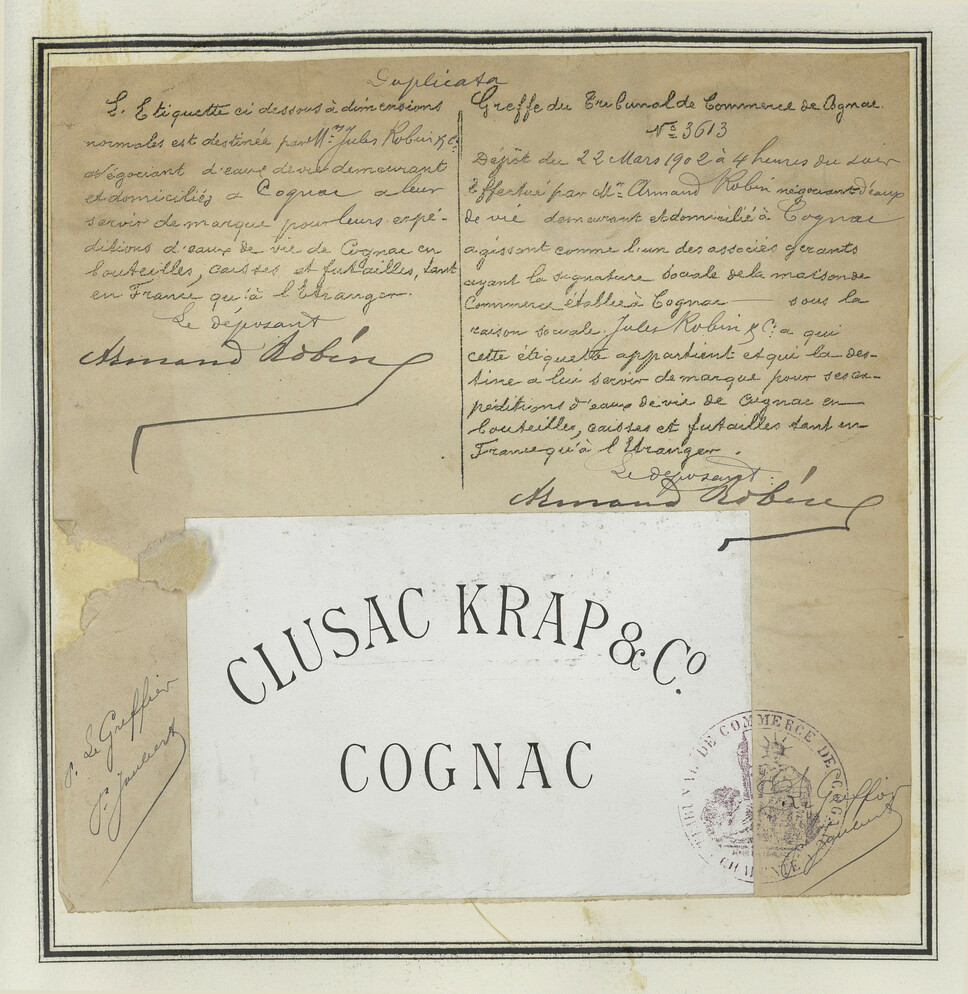 Duplicata
L'Etiquette ci dessous à dimensions
normales est destinée par Mrs Jules Robin & Cie
négociant d'eaux de vie demeurant
et domiciliés à Cognac a leur
servir de marque pour leurs expé-
ditions d'eaux de vie de Cognac en
bouteilles, caisses et futailles, tant
en France qu'à l'Etranger.
Le déposant
Armand Robin
Greffe du Tribunal de Commerce de Cognac.
No 3613
Dépôt du 22 Mars 1902 à 4 heures du soir
Effectué par Mr Armand Robin négociant d'eaux
de vie demeurant et domicilié à Cognac
agissant comme l'un des associés gérants
ayant la signature sociale de la maison de
Commerce établie à Cognac — sous la
raison sociale Jules Robin & Cie a qui
cette étiquette appartient et qui la des-
tine a lui servir de marque pour ses ex-
péditions d'eaux de vie de Cognac en
bouteilles, caisses et futailles tant en
France qu'à l'Etranger.
Le déposant
Armand Robin
CLUSAC KRAP & Co.
COGNAC
p. Le Greffier
Joubert
TRIBUNAL DE COMMERCE DE COGNAC
CHARENTE
Greffier